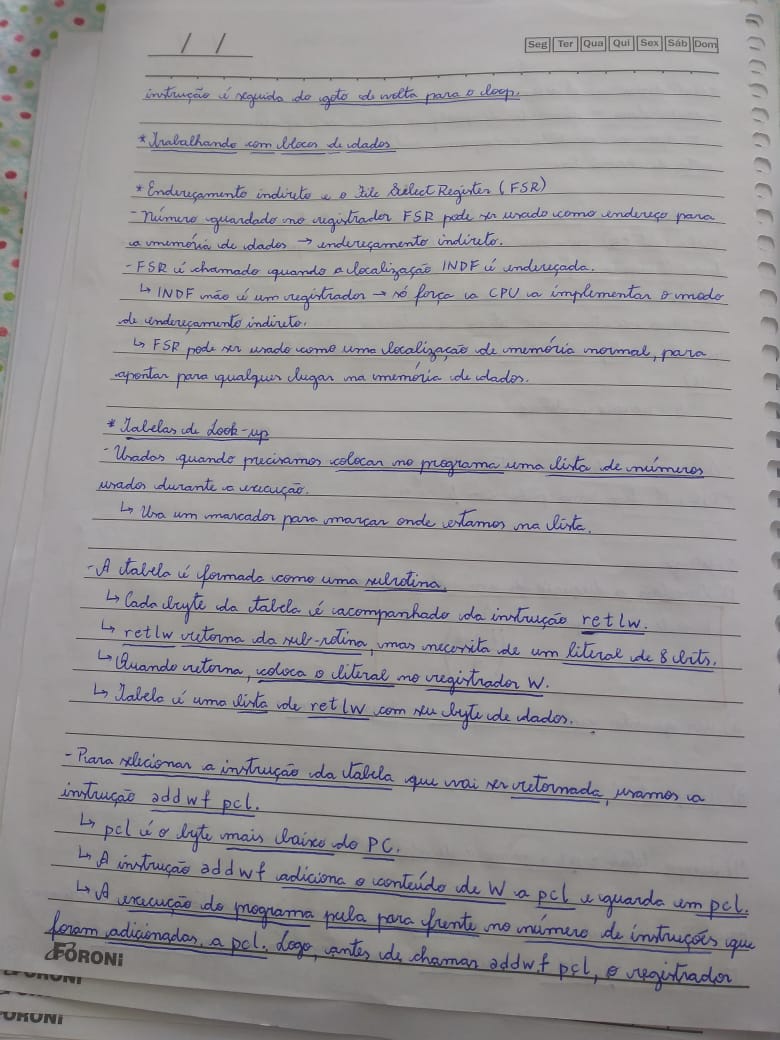 / /
Seg Ter Qua Qui Sex Sáb Dom
instrução é seguida do goto de volta para o loop.
* Trabalhando com blocos de dados
* Endereçamento indireto e o File Select Register (FSR)
- Número guardado no registrador FSR pode ser usado como endereço para
a memória de dados → endereçamento indireto.
- FSR é chamado quando a localização INDF é endereçada.
↳ INDF não é um registrador → só força a CPU a implementar o modo
de endereçamento indireto.
↳ FSR pode ser usado como uma localização de memória normal, para
apontar para qualquer lugar na memória de dados.
* Tabelas de Look-up
- Usadas quando precisamos colocar no programa uma lista de números
usados durante a execução.
↳ Usa um marcador para marcar onde estamos na lista.
- A tabela é formada como uma subrotina.
↳ Cada byte da tabela é acompanhado da instrução retlw.
↳ retlw retorna da sub-rotina, mas necessita de um literal de 8 bits.
↳ Quando retorna, coloca o literal no registrador W.
↳ Tabela é uma lista de retlw com seu byte de dados.
- Para selecionar a instrução da tabela que vai ser retornada, usamos a
instrução addwf pcl.
↳ pcl é o byte mais baixo do PC.
↳ A instrução addwf adiciona o conteúdo de W a pcl e guarda em pcl.
↳ A execução do programa pula para frente no número de instruções que
foram adicionadas, a pcl. Logo, antes de chamar addwf pcl, o registrador
FORONI
FORONI
FORONI